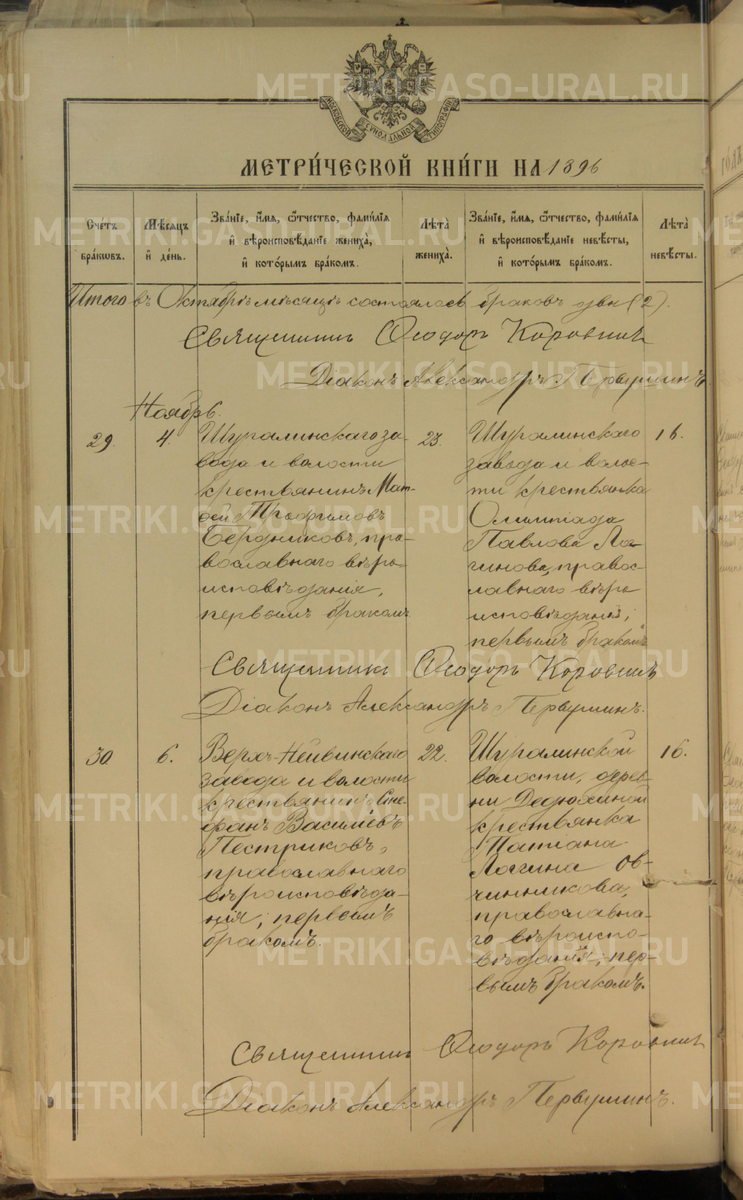 МОСКОВСКОЙ СѴНОДАЛЬНОЙ ТИПОГРАФІИ
МЕТРИ́ЧЕСКОЙ КНИ́ГИ НА 1896
Сче́тъ бра́кѡвъ.
Мѣ́сѧцъ и҆ де́нь.
Зва́нїе, и҆́мѧ, ѻ҆́тчество, фами́лїѧ и҆ вѣроисповѣ́данїе жениха̀, и҆ кото́рымъ бра́комъ.
Лѣ́та жениха̀.
Зва́нїе, и҆́мѧ, ѻ҆́тчество, фами́лїѧ и҆ вѣроисповѣ́данїе невѣ́сты, и҆ кото́рымъ бра́комъ.
Лѣ́та невѣ́сты.
Итого въ Октябрѣ мѣсяцѣ состоялось браковъ два (2).
Священникъ Ѳеодоръ Коровинъ
Діаконъ Александръ Первушинъ
Ноябрь.
29
4.
Шуралинскаго за-
вода и волости
крестьянинъ Мат-
ѳей Трофимовъ
Бердниковъ, пра-
вославнаго вѣро-
исповѣданія,
первымъ бракомъ
23.
Шуралинскаго
завода и волос-
ти крестьянка
Олимпіада
Павлова Ло-
гинова, правос-
лавнаго вѣро-
исповѣданія,
первымъ бракомъ
16.
Священникъ Ѳеодоръ Коровинъ
Діаконъ Александръ Первушинъ.
30
6.
Верхъ-Нейвинскаго
завода и волости
крестьянинъ Сте-
фанъ Василіевъ
Пестриковъ,
православнаго
вѣроисповѣда-
нія, первымъ
бракомъ.
22.
Шуралинской
волости, дерев-
ни Дедюхиной
крестьянка
Татіана
Логина Ов-
чинникова,
православна-
го вѣроиспо-
вѣданія, пер-
вымъ бракомъ.
16.
Священникъ Ѳеодоръ Коровинъ
Діаконъ Александръ Первушинъ.
METRIKI.GASO-URAL.RU